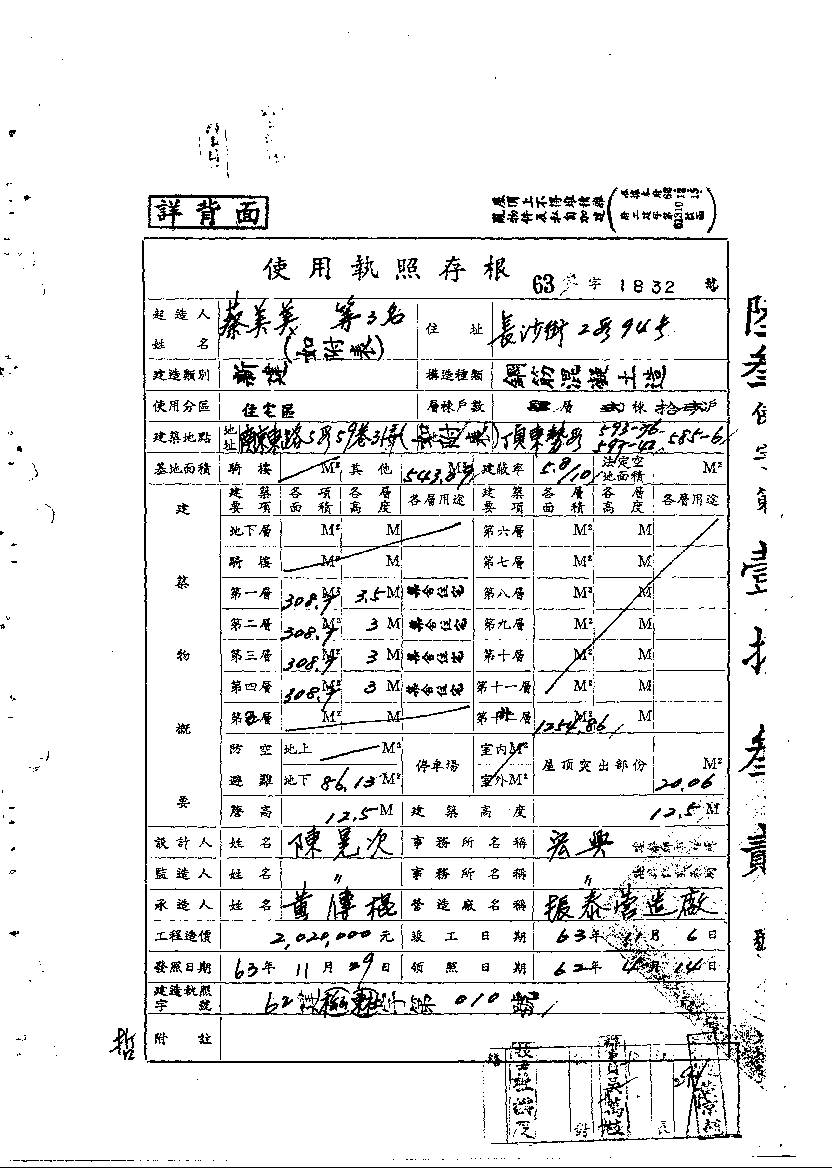 詳背面
屋頂上不得堆積雜
物件及私自加建
使用執照存根
63 字 1832 號
起造人姓名 蔡美美 等3名 (如附表) 住址 長沙街2段94号
建造類別 新建 構造種類 鋼筋混凝土造
使用分區 住宅區 層棟戶數 層 棟 戶
建築地點 地址 南京東路5段59巷31弄 頂東勢段 593-36 597-42 585-6
基地面積 騎樓 M² 其他 543.89 M² 建蔽率 5.8/10 法定空地面積 M²
建築物概要
建築要項 各項面積 各層高度 各層用途 建築要項 各層面積 各層高度 各層用途
地下層 M² M 第六層 M² M
騎樓 M² M 第七層 M² M
第一層 308.7 M² 3.5 M 集合住宅 第八層 M² M
第二層 308.7 M² 3 M 集合住宅 第九層 M² M
第三層 308.7 M² 3 M 集合住宅 第十層 M² M
第四層 308.7 M² 3 M 集合住宅 第十一層 M² M
第五層 M² M 第十 層 1254.86 M² M
防空避難 地上 M² 地下 86.13 M² 停車場 室內 M² 室外 M² 屋頂突出部份 20.06 M²
簷高 12.5 M 建築高度 12.5 M
設計人 姓名 陳晃次 事務所名稱 宏興
監造人 姓名 〃 事務所名稱 〃
承造人 姓名 黃傳棍 營造廠名稱 振泰營造廠
工程造價 2,020,000 元 竣工日期 63年 11月 6日
發照日期 63年 11月 29日 領照日期 62年 4月 14日
建造執照字號 62 010 號
附註
哲